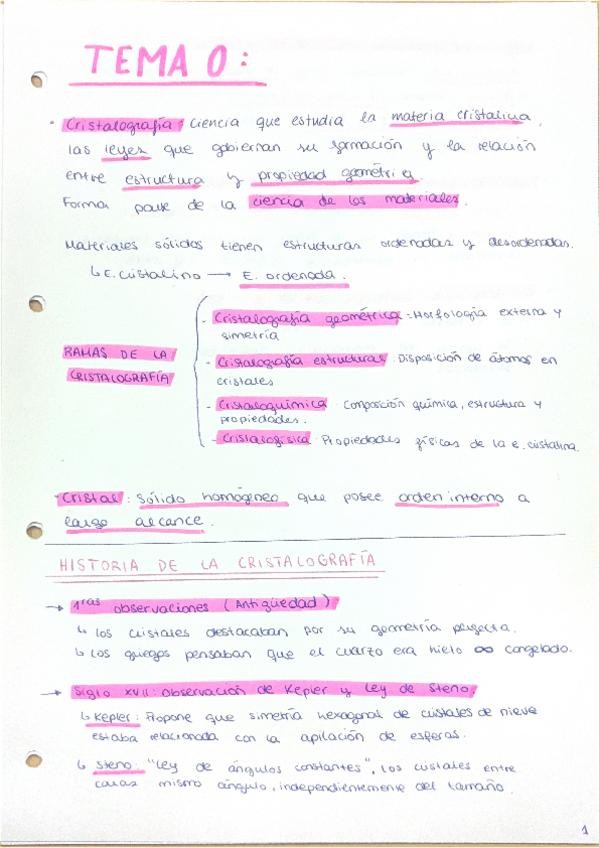 TEMA 0:
· Cristalografía: Ciencia que estudia la materia cristalina,
las leyes que gobiernan su formación y la relación
entre estructura y propiedad geométrica.
Forma parte de la ciencia de los materiales.
Materiales sólidos tienen estructuras ordenadas y desordenadas.
↳ E. cristalino → E. ordenada.
RAMAS DE LA
CRISTALOGRAFÍA
- Cristalografía geométrica: Morfología externa y
simetría
- Cristalografía estructural: Disposición de átomos en
cristales
- Cristaloquímica: Composición química, estructura y
propiedades.
- Cristalofísica: Propiedades físicas de la e. cristalina.
· Cristal: Sólido homogéneo que posee orden interno a
largo alcance.
HISTORIA DE LA CRISTALOGRAFÍA
→ 1ras observaciones (Antigüedad)
↳ Los cristales destacaban por su geometría perfecta.
↳ Los griegos pensaban que el cuarzo era hielo ∞ congelado.
→ Siglo XVII: observación de Kepler y Ley de Steno:
↳ Kepler: Propone que simetría hexagonal de cristales de nieve
estaba relacionada con la apilación de esferas.
↳ Steno: "Ley de ángulos constantes", los cristales entre
caras mismo ángulo, independientemente del tamaño.
1